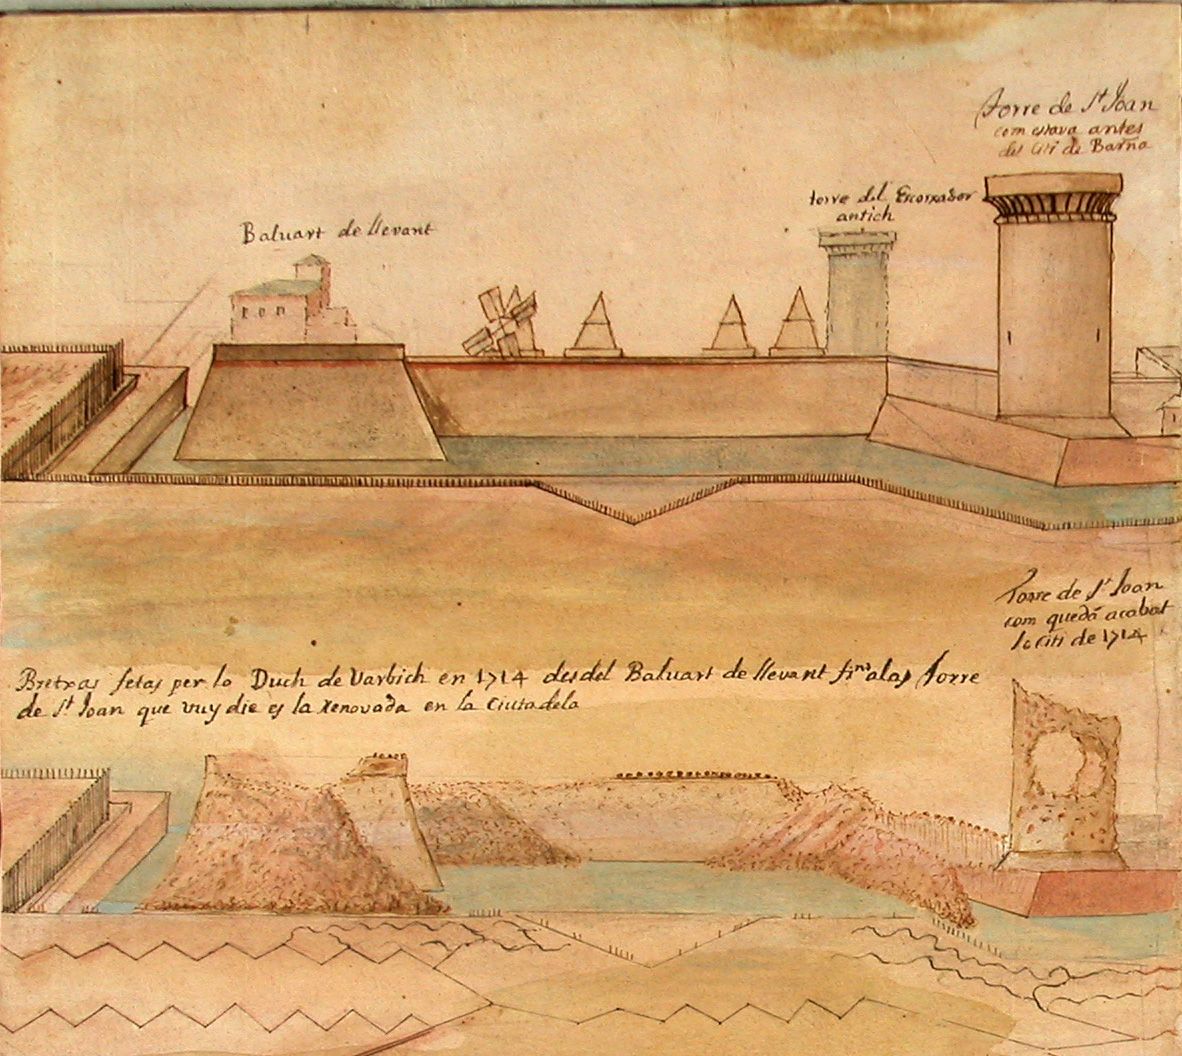 Torre de S.t Joan
com estava antes
del Citi de Barña
torre del Escorxador
antich
Baluart de llevant
Torre de S.t Joan
com quedá acabat
lo Citi de 1714
Bretxas fetas per lo Duch de Varbich en 1714 desdel Baluart de llevant fins alas Torre
de S.t Joan que vuy die es la renovada en la Ciutadela